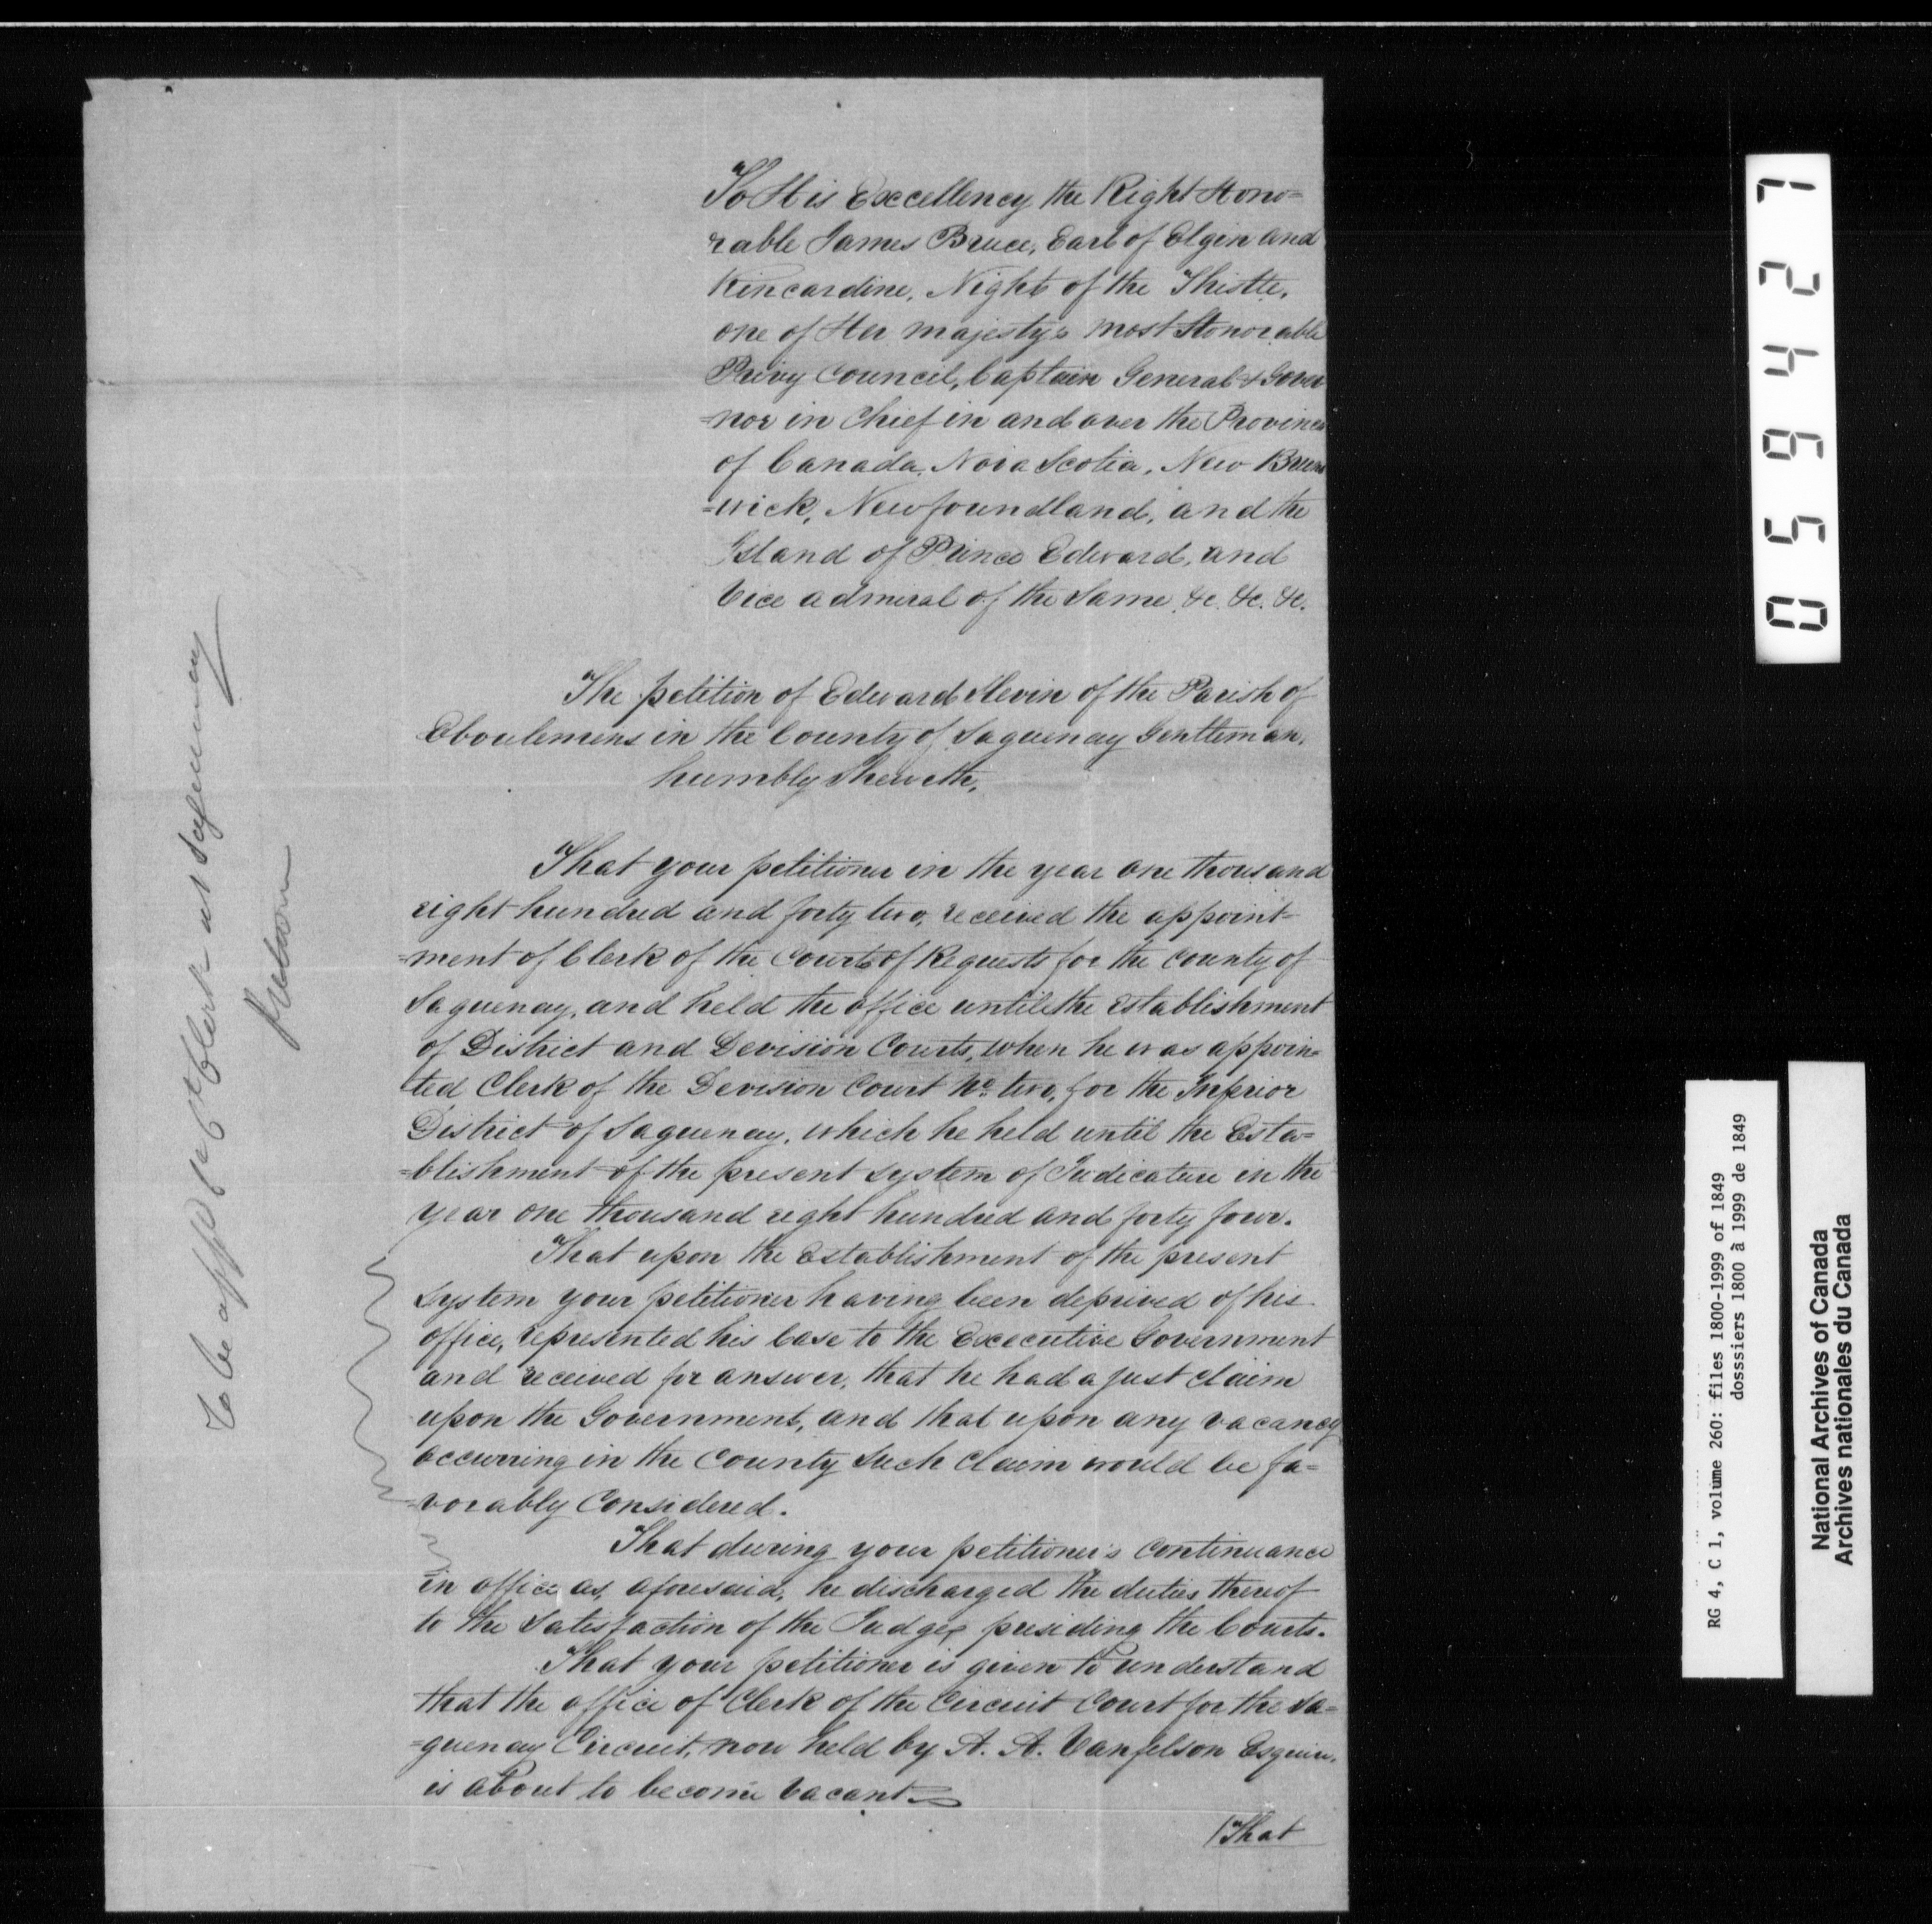 To His Excellency the Right Hono=
rable James Bruce, Earl of Elgin and
Kincardine, Night of the Thistle,
one of Her majesty's most Honorable
Privy Council, Captain General & Gover
=nor in Chief in and over the Provinces
of Canada, Nova Scotia, New Bruns
=wick, Newfoundland, and the
Island of Prince Edward, and
Vice admiral of the Same, &c. &c. &c.
The petition of Edward Slevin of the Parish of
Eboulemens in the County of Saguenay Gentleman,
humbly Sheweth,
That your petitioner in the year one thousand
eight hundred and forty two, received the appoint=
=ment of Clerk of the Courts of Requests for the County of
Saguenay, and held the office until the establishment
of District and Devision Courts, when he was appoin=
ted Clerk of the Devision Court No. two, for the Inferior
District of Saguenay, which he held until the Esta=
=blishment of the present System of Judicature in the
year one thousand eight hundred and forty four.
That upon the Establishment of the present
System your petitioner having been deprived of his
office, represented his Case to the Excecutive Government
and received for answer, that he had a just claim
upon the Government, and that upon any vacancy
occurring in the County Such Claim would be fa=
=vorably Considered.
That during your petitioner's Continuance
in office as, aforesaid, he discharged the duties thereof
to the Satisfaction of the Judges presiding the Courts.
That your petitioner is given to understand
that the office of Clerk of the Circuit Court for the Sa=
=guenay Circuit, now held by A. A. Vanfelson Esquire,
is about to become Vacant
/That
To be appd Clerk at Saguenay
059427
RG 4, C 1, volume 260: files 1800-1999 of 1849
dosssiers 1800 à 1999 de 1849
National Archives of Canada
Archives nationales du Canada